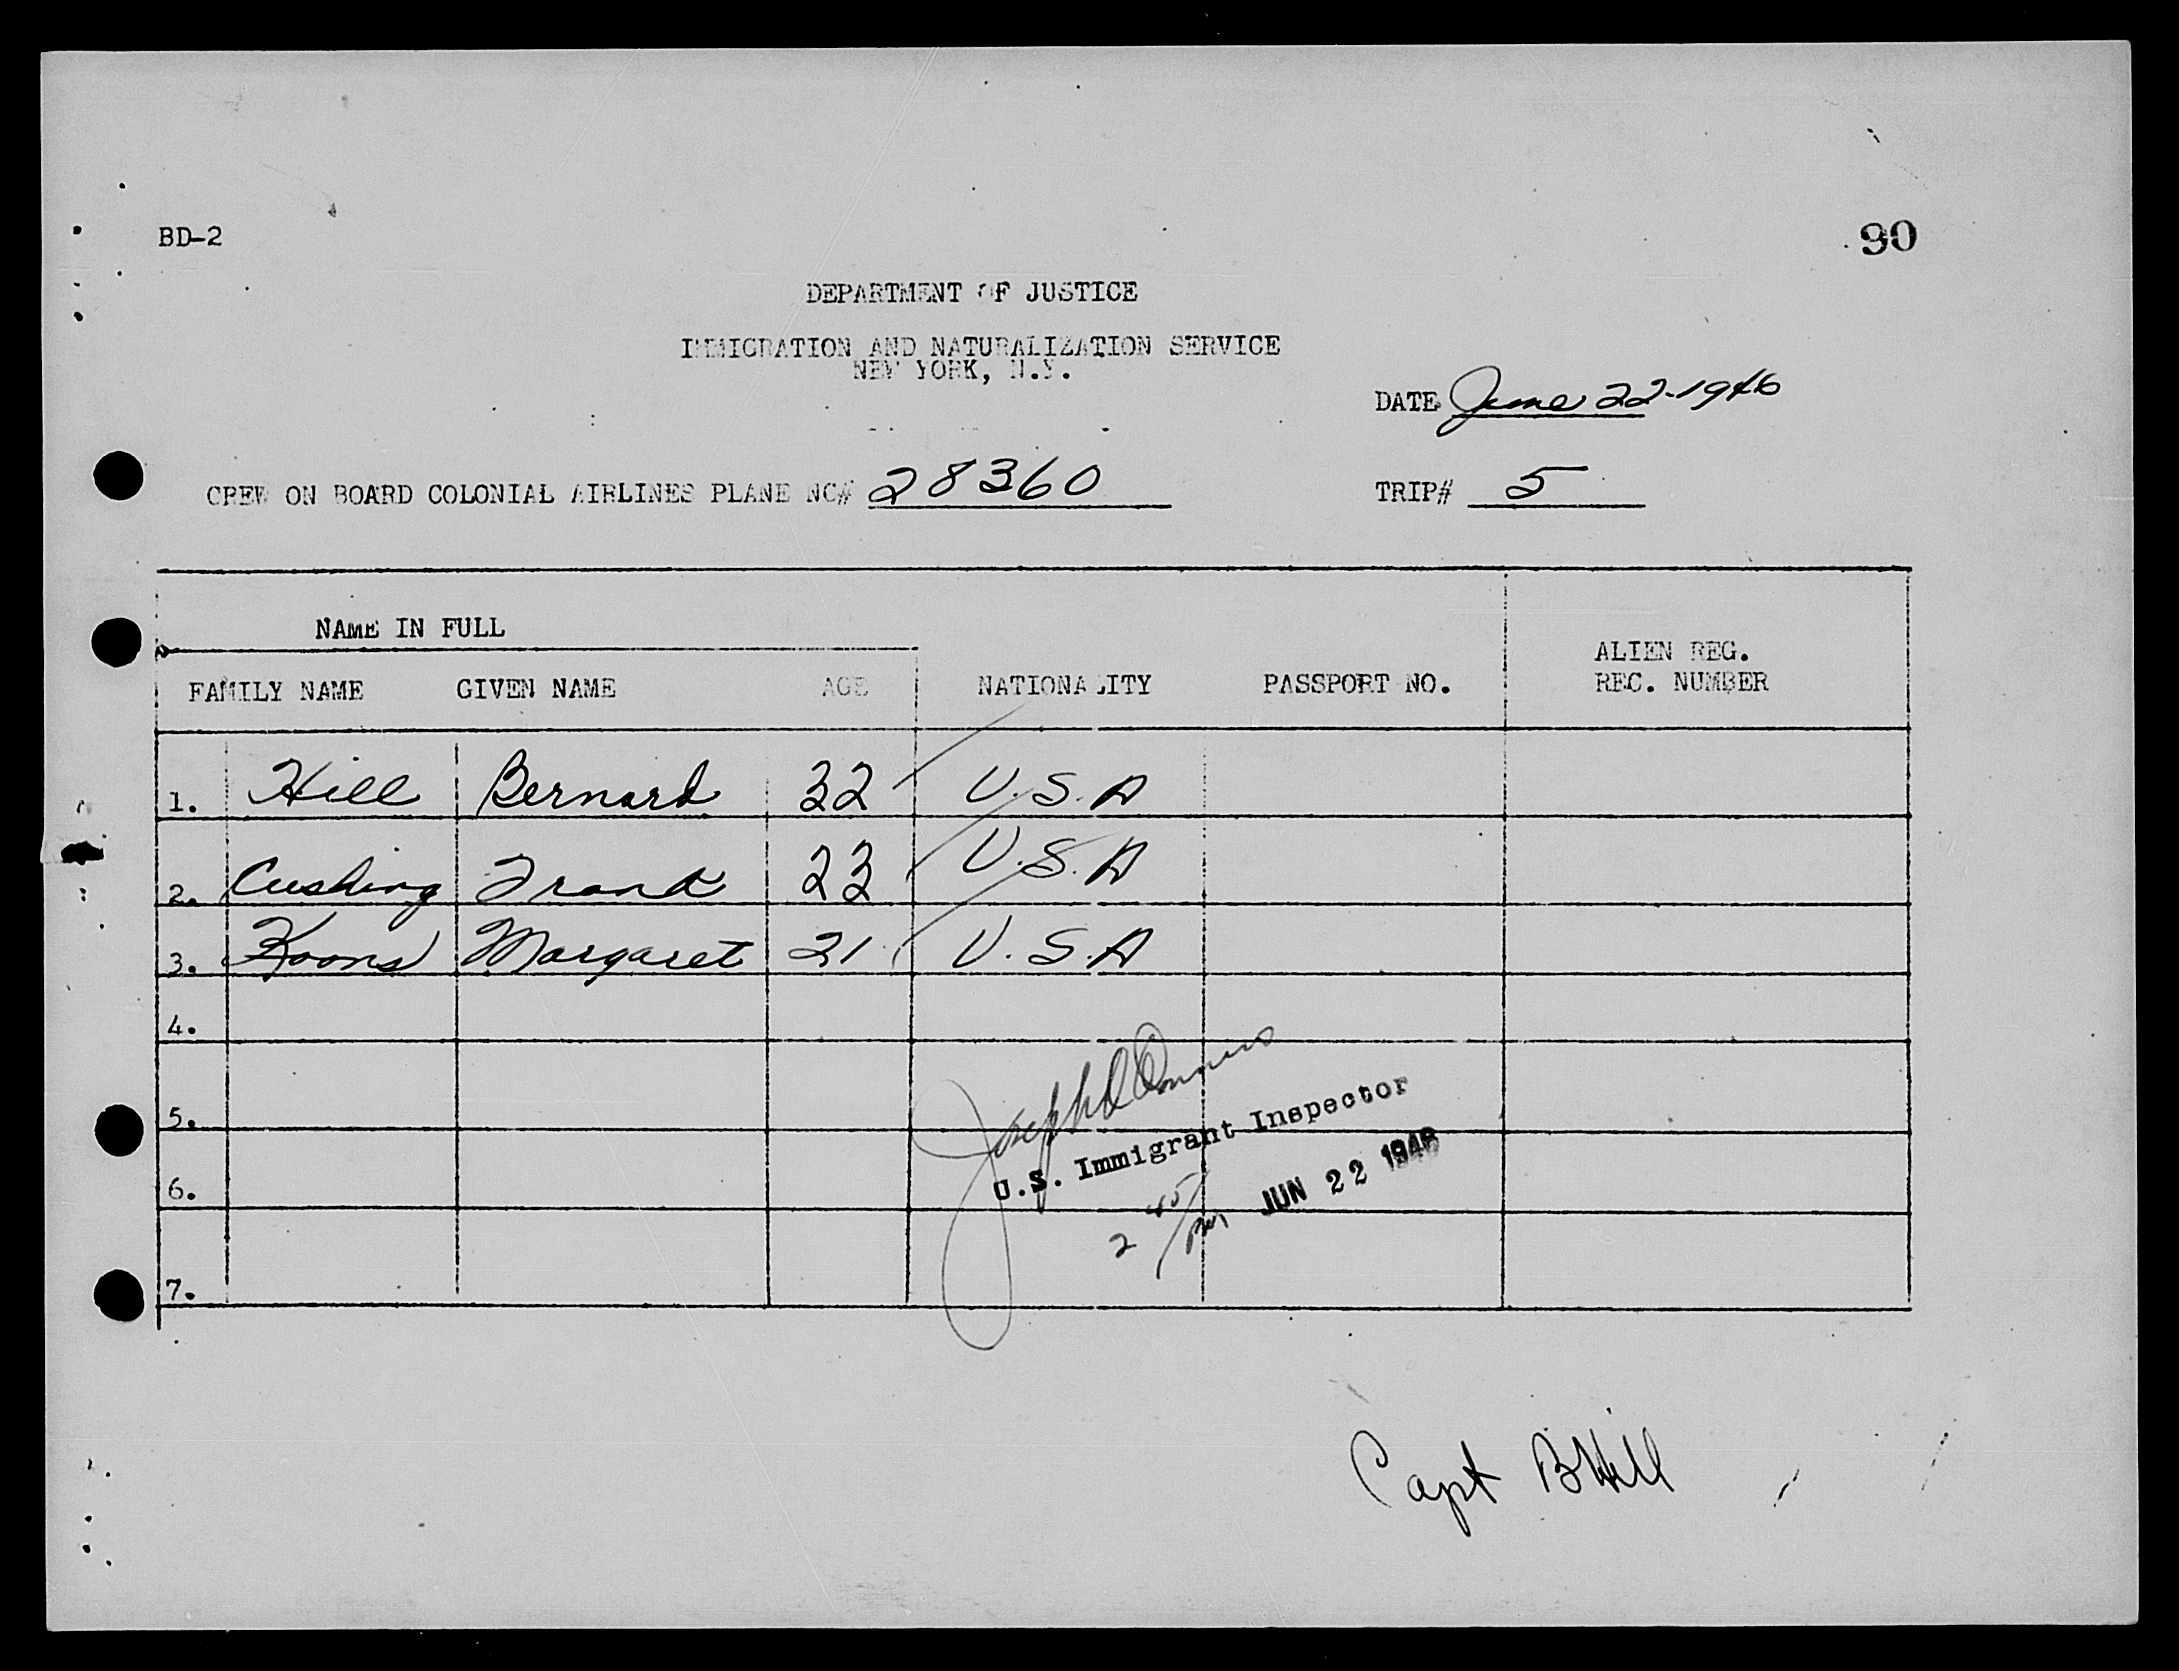 BD-2
90
DEPARTMENT OF JUSTICE
IMMIGRATION AND NATURALIZATION SERVICE
NEW YORK, N.Y.
DATE June 22-1946
CREW ON BOARD COLONIAL AIRLINES PLANE NC# 28360 TRIP# 5
NAME IN FULL
FAMILY NAME GIVEN NAME AGE NATIONALITY PASSPORT NO. ALIEN REG. REC. NUMBER
1. Hill Bernard 32 U.S.A
2. Cushing Frank 23 U.S.A
3. Koons Margaret 21 U.S.A
4.
5.
6.
7.
Joseph
U.S. Immigrant Inspector
2 45/pm JUN 22 1946
Capt BHill